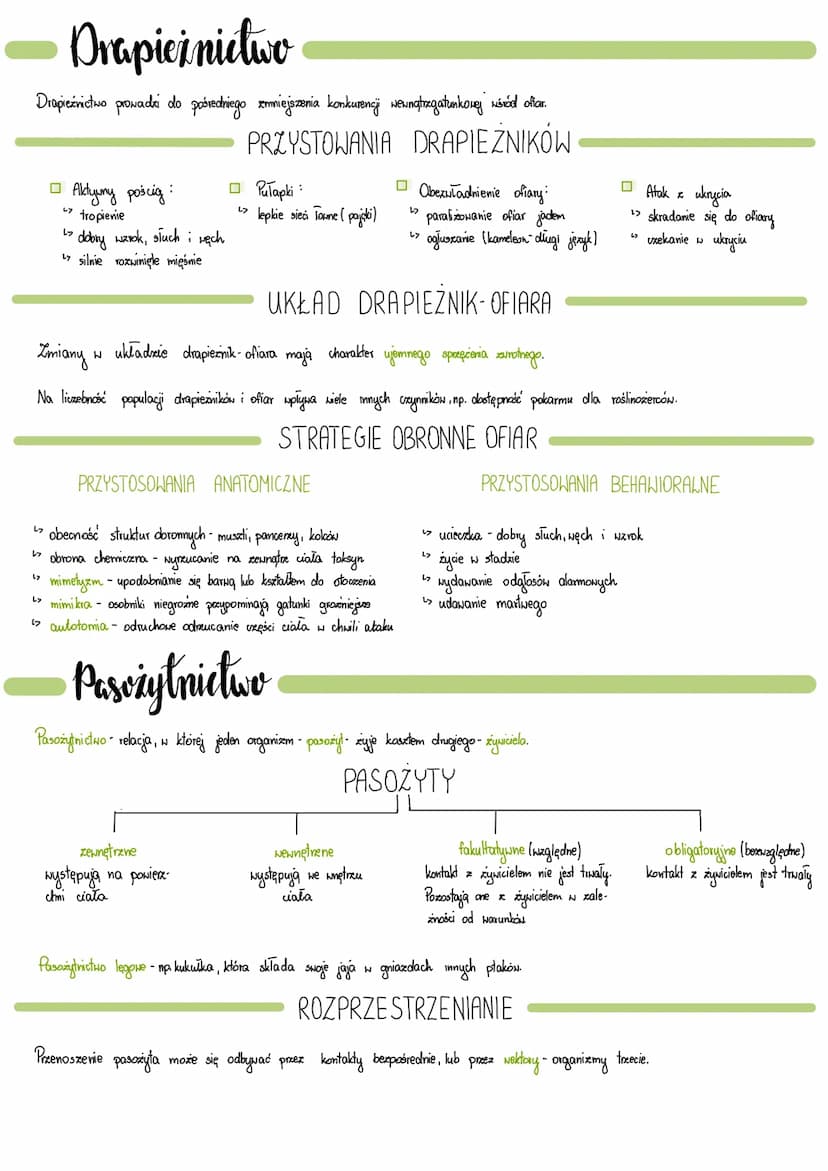 Drapieżnictwo
Drapieżnictwo prowadzi do pośredniego zmniejszenia konkurencji wewnątrzgatunkowej wśród ofiar.
PRZYSTOWANIA DRAPIEŻNIKÓW
Aktywny pościg:
↳ tropienie
↳ dobry wzrok, słuch i węch
↳ silnie rozwinięte mięśnie
Pułapki:
↳ lepkie sieci łowne (pająki)
Obezwładnienie ofiary:
↳ paraliżowanie ofiar jadem
↳ ogłuszanie (kameleon-długi język)
Atak z ukrycia
↳ skradanie się do ofiary
↳ czekanie w ukryciu
UKŁAD DRAPIEŻNIK-OFIARA
Zmiany w układzie drapieżnik-ofiara mają charakter ujemnego sprzężenia zwrotnego.
Na liczebność populacji drapieżników i ofiar wpływa wiele innych czynników, np. dostępność pokarmu dla roślinożerców.
STRATEGIE OBRONNE OFIAR
PRZYSTOSOWANIA ANATOMICZNE
↳ obecność struktur obronnych - muszli, pancerzy, kolców
↳ obrona chemiczna - wyrzucanie na zewnątrz ciała toksyn
↳ mimetyzm - upodobnianie się barwą lub kształtem do otoczenia
↳ mimikra - osobniki niegroźne przypominają gatunki groźniejsze
↳ autotomia - odruchowe odrzucanie części ciała w chwili ataku
PRZYSTOSOWANIA BEHAWIORALNE
↳ ucieczka - dobry słuch, węch i wzrok
↳ życie w stadzie
↳ wydawanie odgłosów alarmowych
↳ udawanie martwego
Pasożytnictwo
Pasożytnictwo - relacja, w której jeden organizm - pasożyt - żyje kosztem drugiego - żywiciela.
PASOŻYTY
zewnętrzne
występują na powierz-
chni ciała
wewnętrzne
występują we wnętrzu
ciała
fakultatywne (względne)
kontakt z żywicielem nie jest trwały.
Pozostają one z żywicielem w zale-
żności od warunków
obligatoryjne (bezwzględne)
kontakt z żywicielem jest trwały
Pasożytnictwo lęgowe - np. kukułka, która składa swoje jaja w gniazdach innych ptaków.
ROZPRZESTRZENIANIE
Przenoszenie pasożyta może się odbywać przez kontakty bezpośrednie, lub przez wektory - organizmy trzecie.